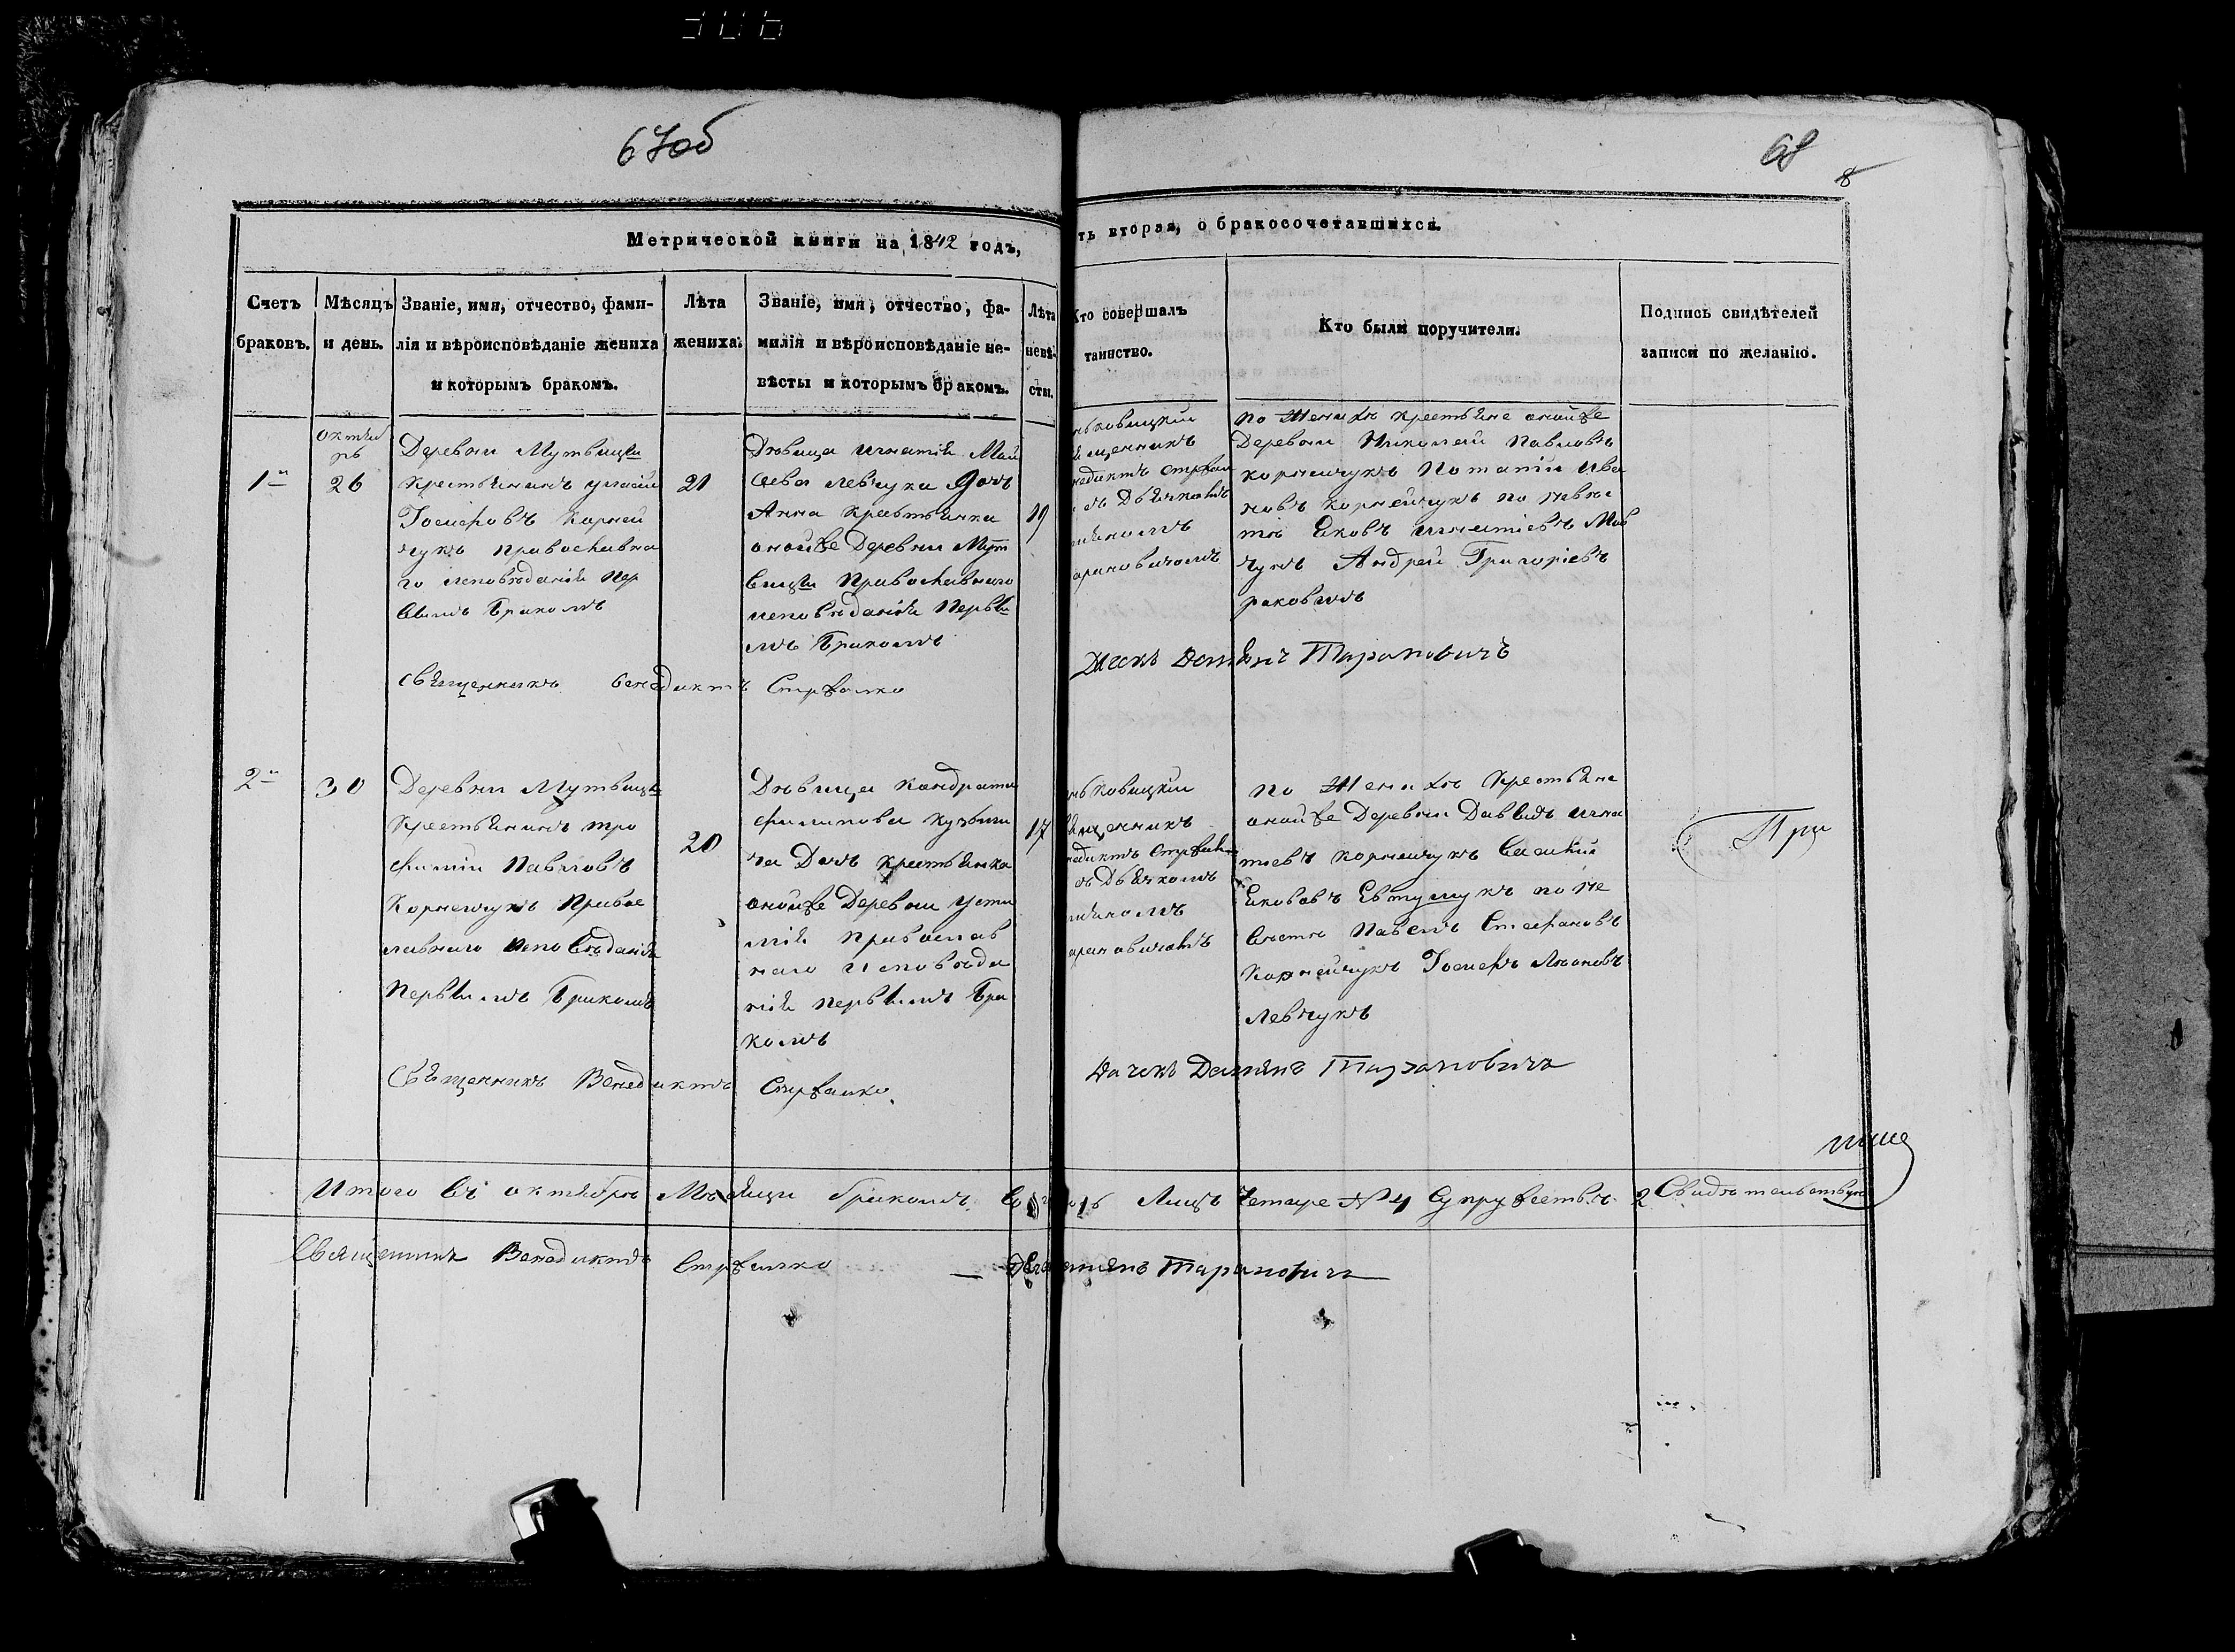 67об
68
8
Метрической книги на 1842 годъ,
ть вторая, о бракосочетавшихся.
Счетъ
браковъ.
Мѣсяцъ
и день.
Званіе, имя, отчество, фами-
лія и вѣроисповѣданіе жениха
и которымъ бракомъ.
Лѣта
жениха.
Званіе, имя, отчество, фа-
милія и вѣроисповѣданіе не-
вѣсты и которымъ бракомъ.
Лѣта
невѣ-
сты.
Кто совершалъ
таинство.
Кто были поручители.
Подпись свидѣтелей
записи по желанію.
1й
октяб
рь
26
Деревни Мутвици
Крестьянинъ
Іосифовъ Корней
чукъ Православна
го исповѣданія Пер
вымъ Бракомъ
21
Дѣвица Игнатія Мои
сеева Левчука Дочь
Анна Крестьянка
оной же Деревни Мут
вици Православного
исповѣданія Первы
мъ Бракомъ
19
ньковицкій
ященникъ
недиктъ Стрѣлк
съ Дьячкомъ
арановичомъ
По Женихѣ Крестьяне оной же
Деревни Николай Павловъ
Корнейчукъ Потапій Ива
новъ Корнейчукъ по невѣс
тѣ Яковъ Игнатіевъ Лев
чукъ Андрей Григоріевъ
Раковичъ
Священникъ Венедиктъ
Дячекъ Демянъ Тарановичъ
2й
30
Деревни Мутвици
Крестьянинъ тро
фимій Павловъ
Корнейчукъ Правос
лавнаго исповѣданія
Первымъ Бракомъ
20
Дѣвица Кондрата
Филипова Кузьми
ча Дочь Крестьянка
оной же Деревни Усти
мія Православ
наго Исповѣда
нія Первымъ Бра
комъ
17
ньковицкій
ященникъ
недиктъ
съ Дьячкомъ
арановичомъ
по Женихѣ Крестьяне
оной же Деревни Давидъ Игна
тіевъ Корнейчукъ Василій
Яковъ Евтушукъ по не
вѣстѣ Павелъ Стефановъ
Корнейчукъ Іосифъ Леоновъ
Левчукъ
При
Священникъ Венедиктъ
Дячекъ Демянъ Тарановичъ
Итого въ октябрѣ Мѣсяци бракомъ Лицъ Четыре № 4 Супружествъ 2
Священникъ Венедиктъ
Тарановичъ